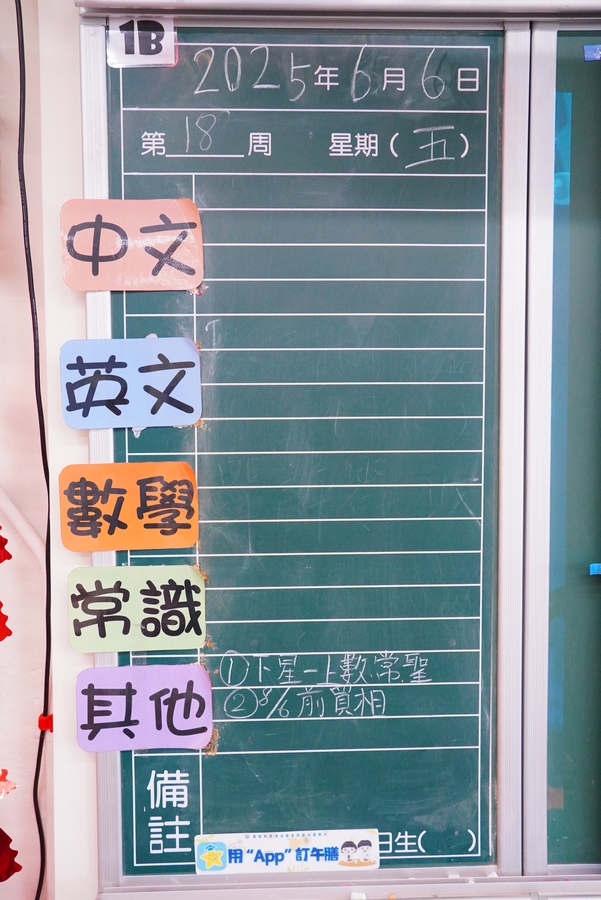 1B
2025年6月6日
第18周 星期（五）
中文
英文
數學
常識
其他
①下星一上數.常.聖
②8/6前買相
備註
用“App”訂午膳
日生( )